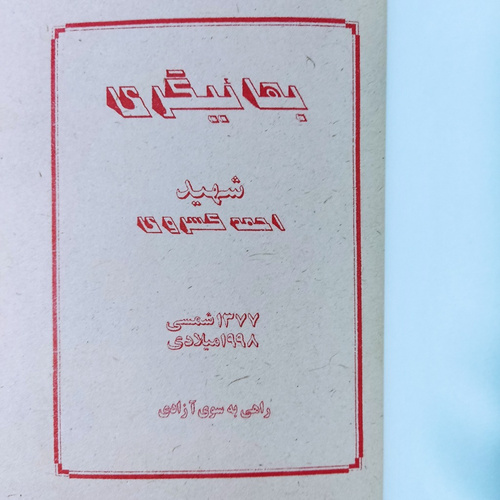 بهائیگری
شهید
احمد کسروی
۱۳۷۷ شمسی
۱۹۹۸ میلادی
راهی به سوی آزادی